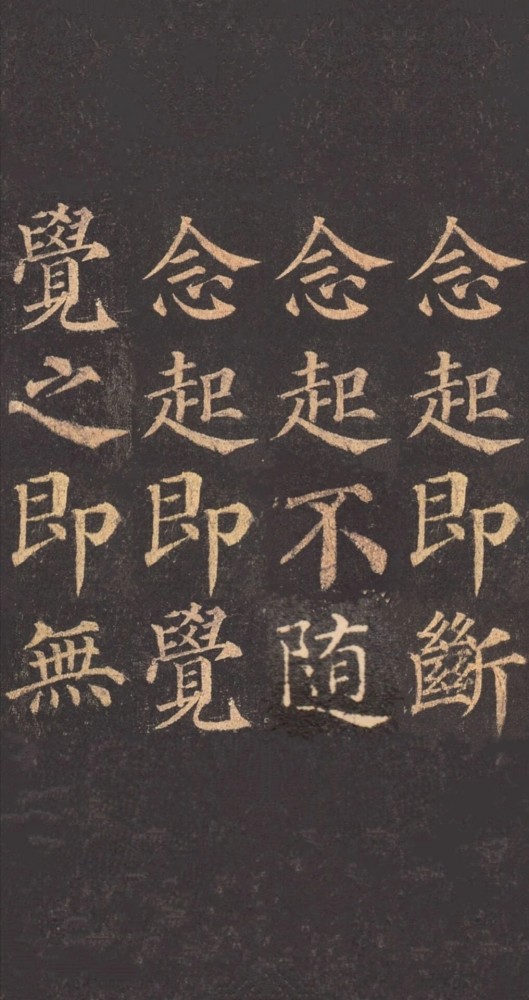 念起即斷
念起不随
念起即覺
覺之即無